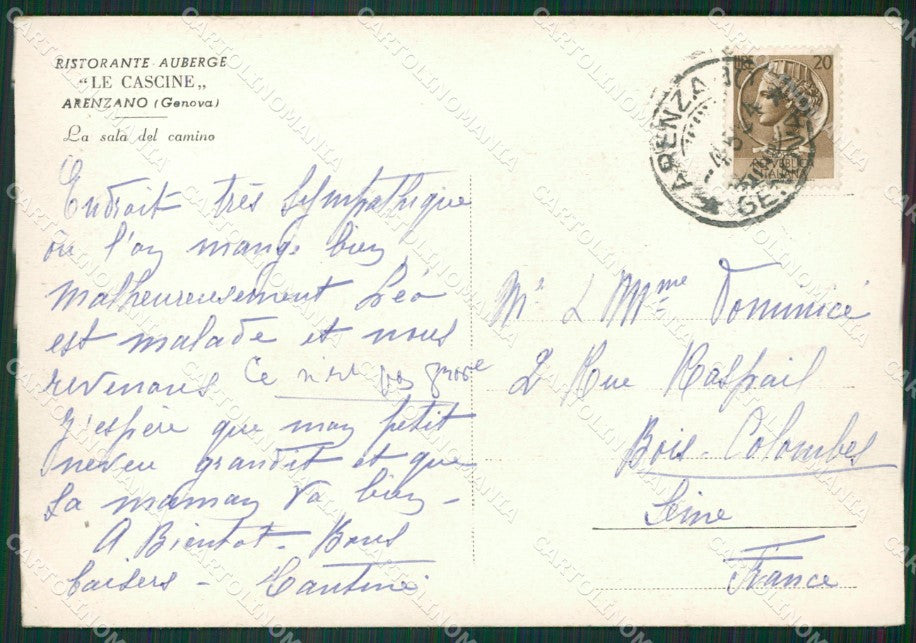 RISTORANTE AUBERGE
“LE CASCINE„
ARENZANO (Genova)
La sala del camino
Endroit très sympathique
où l'on mange bien
malheureusement Léo
est malade et nous
revenons Ce n'est pas grave
j'espère que mon petit
neveu grandit et que
sa maman va bien -
A Bientôt - Bons
baisers -
Mr & Mme Dominicé
2 Rue Raspail
Bois-Colombes
Seine
France
LIRE 20
REPVBBLICA
ITALIANA
ARENZANO
GENOVA
CARTOLINOMANIA